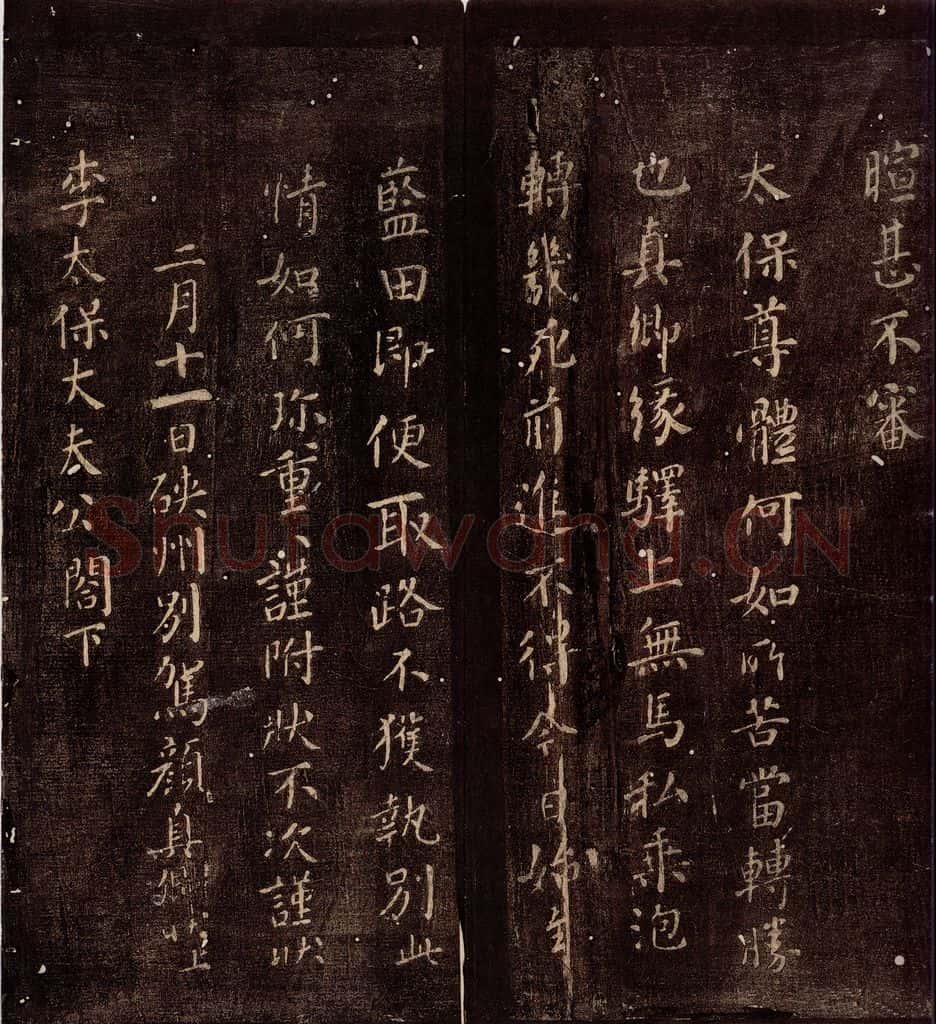 暄甚不審
太保尊體何如所苦當轉勝
也真卿緣驛上無馬私乘泡
轉幾死前進不得今日始至
藍田即便取路不獲執別此
情如何珎重、謹附狀不次謹狀
二月十一日硤州別駕顏真卿狀上
李太保大夫公閤下
Shufawang.CN